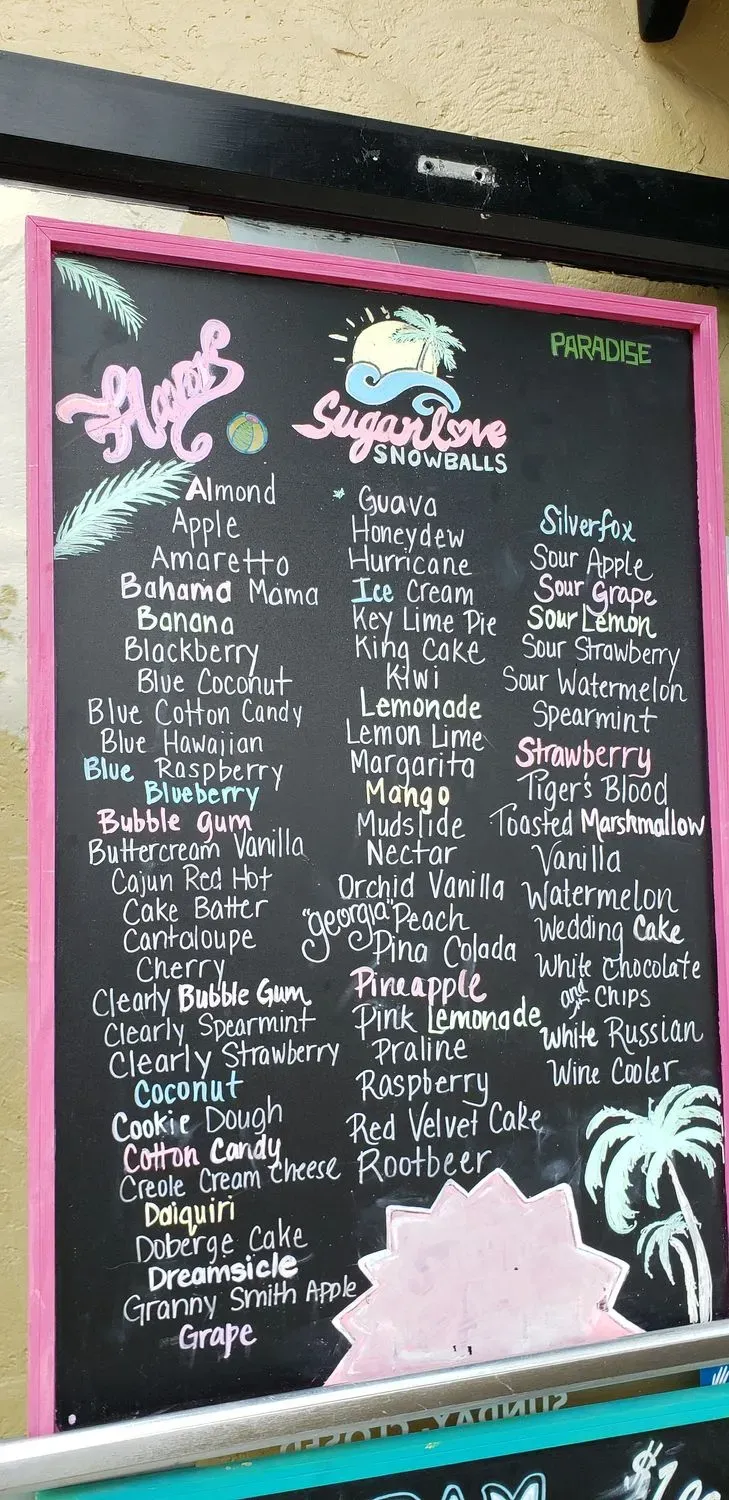 Flavors
Sugarlove
SNOWBALLS
PARADISE
Almond
Apple
Amaretto
Bahama Mama
Banana
Blackberry
Blue Coconut
Blue Cotton Candy
Blue Hawaiian
Blue Raspberry
Blueberry
Bubble gum
Buttercream Vanilla
Cajun Red Hot
Cake Batter
Cantaloupe
Cherry
Clearly Bubble Gum
Clearly Spearmint
Clearly Strawberry
Coconut
Cookie Dough
Cotton Candy
Creole Cream Cheese
Daiquiri
Doberge Cake
Dreamsicle
Granny Smith Apple
Grape
Guava
Honeydew
Hurricane
Ice Cream
Key Lime Pie
King Cake
Kiwi
Lemonade
Lemon Lime
Margarita
Mango
Mudslide
Nectar
Orchid Vanilla
"georgia" Peach
Pina Colada
Pineapple
Pink Lemonade
Praline
Raspberry
Red Velvet Cake
Rootbeer
Silverfox
Sour Apple
Sour Grape
Sour Lemon
Sour Strawberry
Sour Watermelon
Spearmint
Strawberry
Tiger's Blood
Toasted Marshmallow
Vanilla
Watermelon
Wedding Cake
White Chocolate
and Chips
White Russian
Wine Cooler
SUNDAY-CLOSED